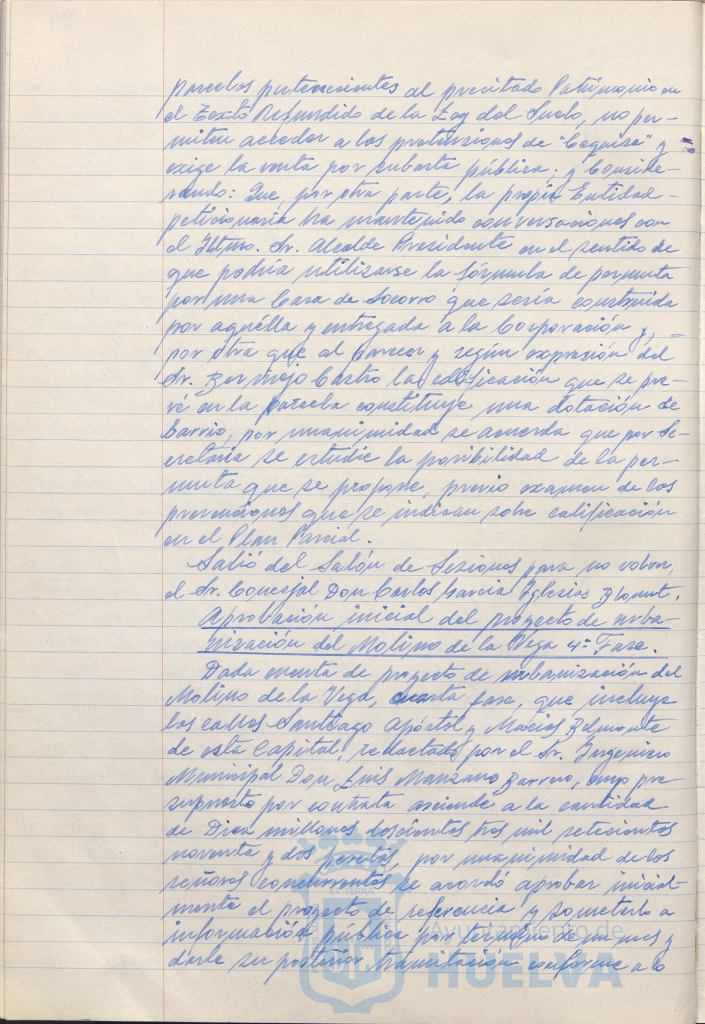 parcelas pertenecientes al precitado Patrimonio en
el Texto Refundido de la Ley del Suelo, no per-
miten acceder a las pretensiones de "Cequisa" y
exige la venta por subasta pública; y Conside-
rando: Que, por otra parte, la propia Entidad
peticionaria ha mantenido conversaciones con
el Iltmo. Sr. Alcalde Presidente en el sentido de
que podría utilizarse la fórmula de permuta
por una Casa de Socorro que sería construida
por aquélla y entregada a la Corporación y, =
por otra que al parecer y según expresión del
Sr. Bermejo Castro la edificación que se pre-
vé en la parcela constituye una dotación de
Barrio, por unanimidad se acuerda que por Se-
cretaría se estudie la posibilidad de la per-
muta que se propone, previo examen de las
prevenciones que se indican sobre calificación
en el Plan Parcial.
Salió del Salón de Sesiones para no volver,
el Sr. Concejal Don Carlos García Iglesias Blomt.
Aprobación inicial del proyecto de urba-
nización del Molino de la Vega 4ª Fase.
Dada cuenta de proyecto de urbanización del
Molino de la Vega, cuarta fase, que incluye
las calles Santiago Apóstol y Macías Belmonte
de esta Capital, redactado por el Sr. Ingeniero
Municipal Don Luis Manzano Barrero, cuyo pre-
supuesto por contrata asciende a la cantidad
de Diez millones doscientas tres mil setecientas
noventa y dos pesetas, por unanimidad de los
señores concurrentes se acordó aprobar inicial-
mente el proyecto de referencia y someterlo a
información pública por término de un mes y
darle su posterior tramitación conforme a lo
Ayuntamiento de
HUELVA